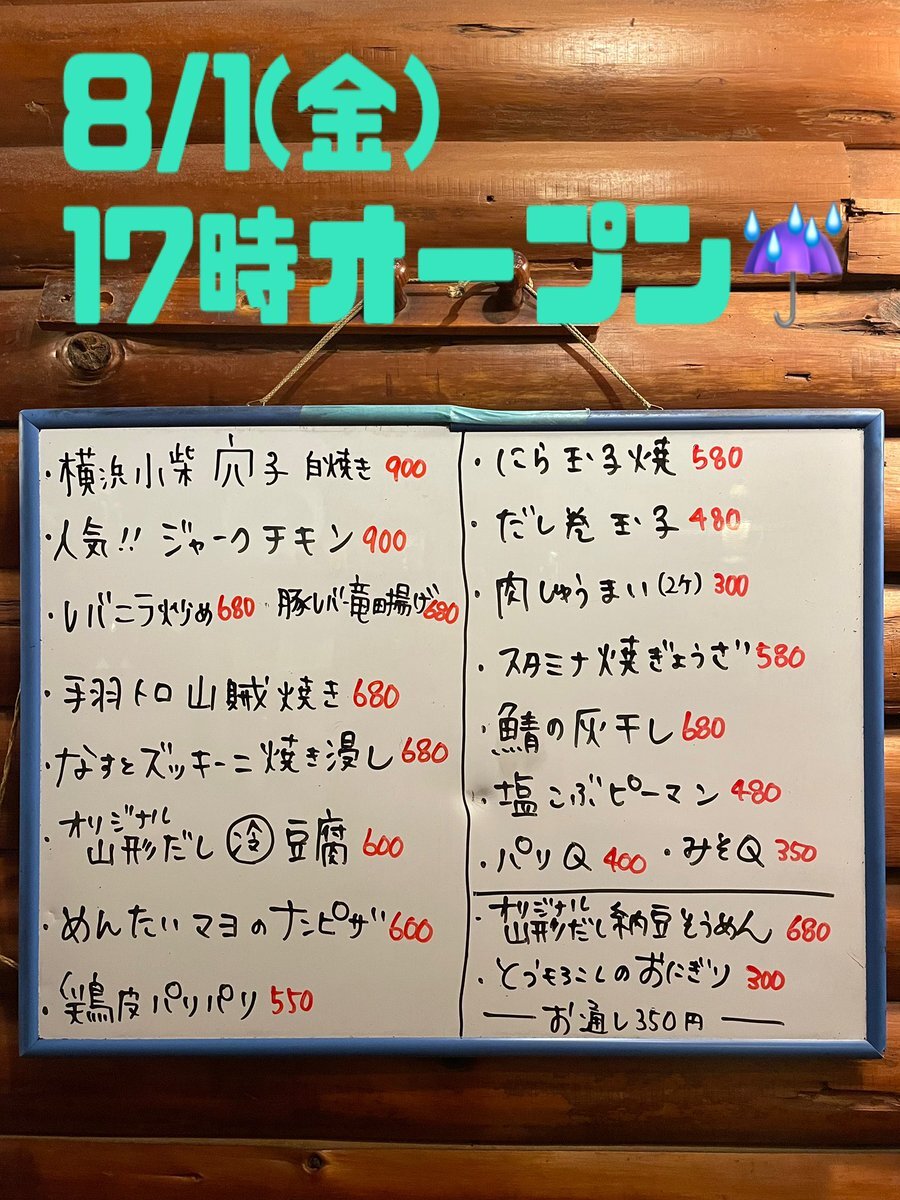 8/1(金)
17時オープン
・横浜小柴 穴子 白焼き 900
・人気!! ジャークチキン 900
・レバニラ炒め 680 豚レバー竜田揚げ 680
・手羽トロ山賊焼き 680
・なすとズッキーニ焼き浸し 680
・オリジナル
山形だし 冷 豆腐 600
・めんたいマヨのナンピザ 600
・鶏皮パリパリ 550
・にら玉子焼 580
・だし巻玉子 480
・肉しゅうまい(2ケ) 300
・スタミナ焼ぎょうざ 580
・鯖の灰干し 680
・塩こぶピーマン 480
・パリQ 400 ・みそQ 350
・オリジナル
山形だし納豆そうめん 680
・とうもろこしのおにぎり 300
― お通し350円 ―